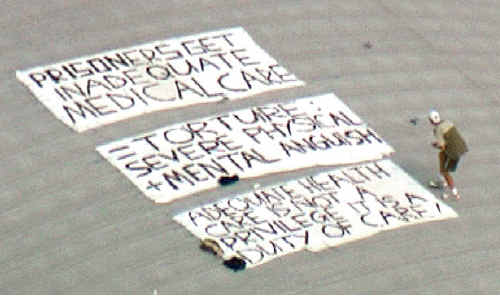 PRISONERS GET
INADEQUATE
MEDICAL CARE
= TORTURE:
SEVERE PHYSICAL
+ MENTAL ANGUISH
ADEQUATE HEALTH
CARE IS NOT A
PRIVILEGE IT IS A
DUTY OF CARE!